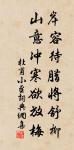 岸容待腊将舒柳
山意冲寒欲放梅
杜甫小至词典网书